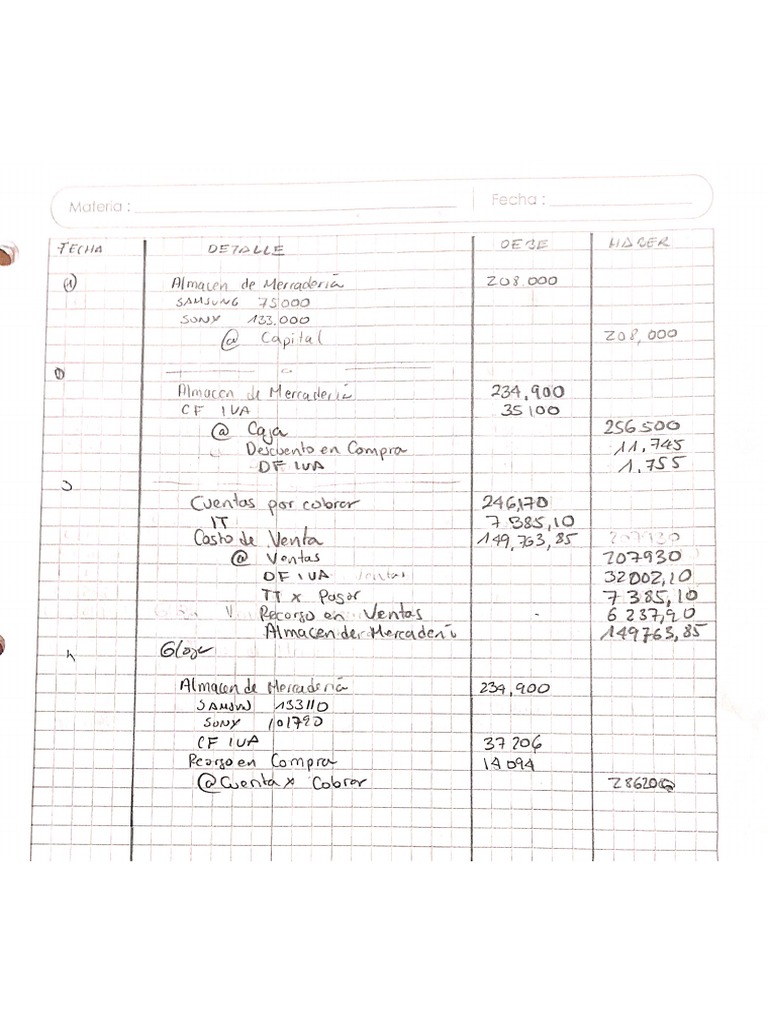 Materia : Fecha :
FECHA DETALLE DEBE HABER
(1) Almacen de Mercaderia 208.000
SAMSUNG 75000
SONY 133.000
@ Capital 208,000
Almacen de Mercaderia 234,900
CF IVA 35100
@ Caja 256500
Descuento en Compra 11,745
DF IVA 1,755
Cuentas por cobrar 246,170
IT 7385,10
Costo de Venta 149,763,85 207930
@ Ventas 207930
DF IVA Ventas 32002,10
IT x Pagar 7385,10
Recarso en Ventas 6237,90
Almacen der Mercaderi 149763,85
Glosa
Almacen de Mercaderia 234,900
SAMSUN 133110
SONY 101790
CF IUA 37206
Recarso en Compra 14094
@ Cuenta x Cobrar 286200